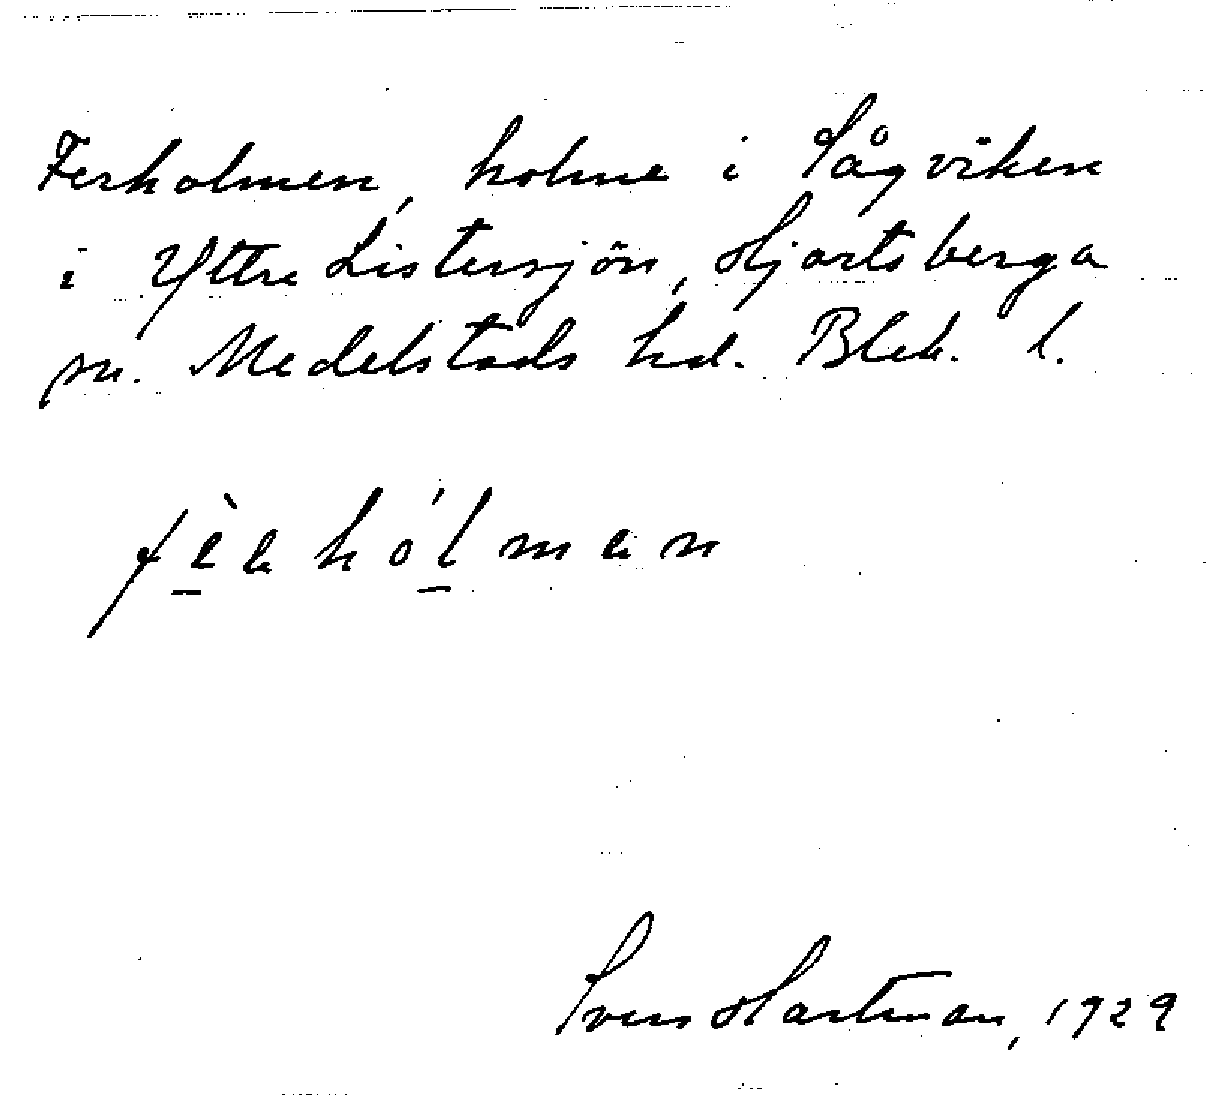 Ferholmen, holme i Sågviken
i Yttre Listersjön, Hjortsberga
sn. Medelstads hd. Blek. l.
Sven Hartman, 1929